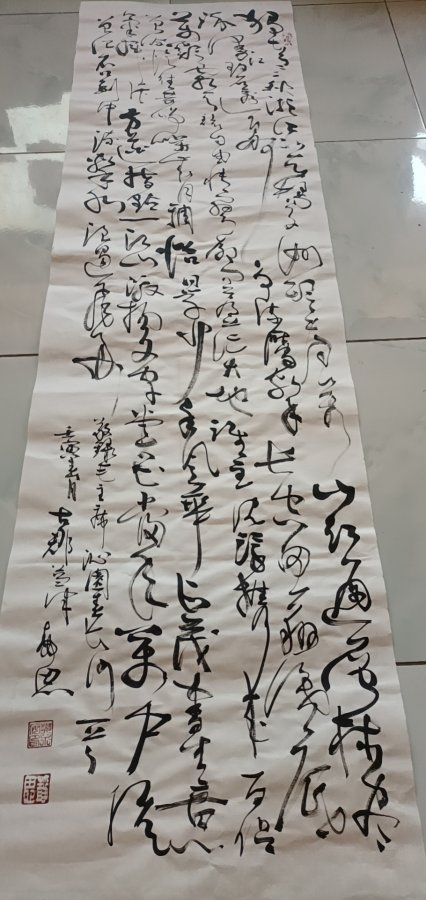 独立寒秋湘江北去橘子洲头看万山红遍层林尽
染漫江碧透百舸争流鹰击长空鱼翔浅底
万类霜天竞自由怅寥廓问苍茫大地谁主沉浮携来百侣
曾游忆往昔峥嵘岁月稠恰同学少年风华正茂书生意
气挥斥方遒指点江山激扬文字粪土当年万户侯
曾记否到中流击水浪遏飞舟
敬录毛主席沁园春长沙
壬寅